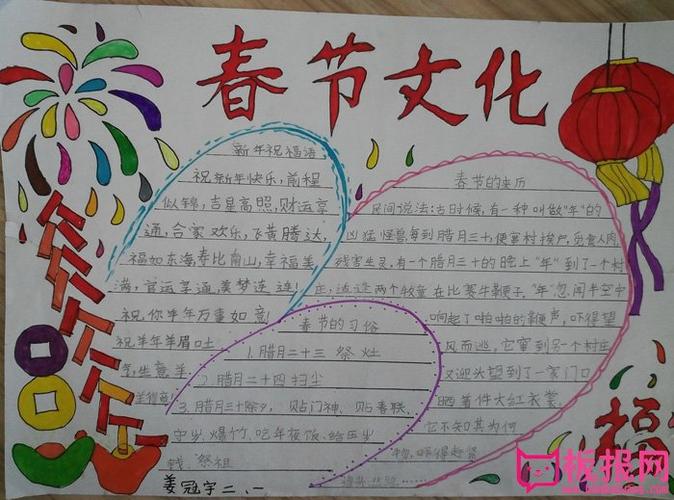 春节文化
新年祝福语
祝新年快乐,前程
似锦,吉星高照,财运亨
通,合家欢乐,飞黄腾达,
福如东海,寿比南山,幸福美
满,官运亨通,美梦连连!
祝你羊年万事如意
祝羊年羊眉吐
气,生意羊
羊得意
春节的习俗
1.腊月二十三 祭灶
2.腊月二十四 扫尘
3.腊月三十除夕,贴门神、贴春联、
守岁、爆竹、吃年夜饭、给压岁
钱、祭祖
春节的来历
民间说法:古时候,有一种叫做"年"的
凶猛怪兽,每到腊月三十,便窜村挨户,觅食人肉,
残害生灵。有一个腊月三十的晚上"年"到了一个村
庄,适逢两个牧童在比赛牛鞭子。"年"忽闻半空中
响起了啪啪的鞭声,吓得望
风而逃,它窜到另一个村庄
又迎头望到了一家门口
晒着件大红衣裳
它不知其为何
物,吓得赶紧
姜冠宇 二、一
福
板报网